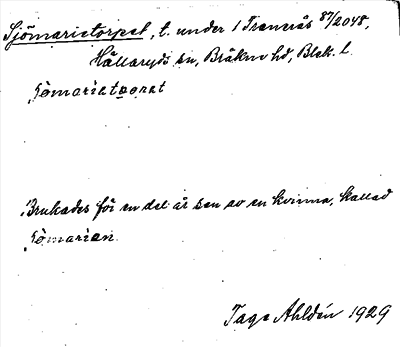 Sjömarietorpet, t. under 1 Tranerås 87/2048,
Hällaryds sn, Bräkne hd, Blek. l.
Brukades för en del år sen av en kvinna, kallad
Tage Ahldén 1929